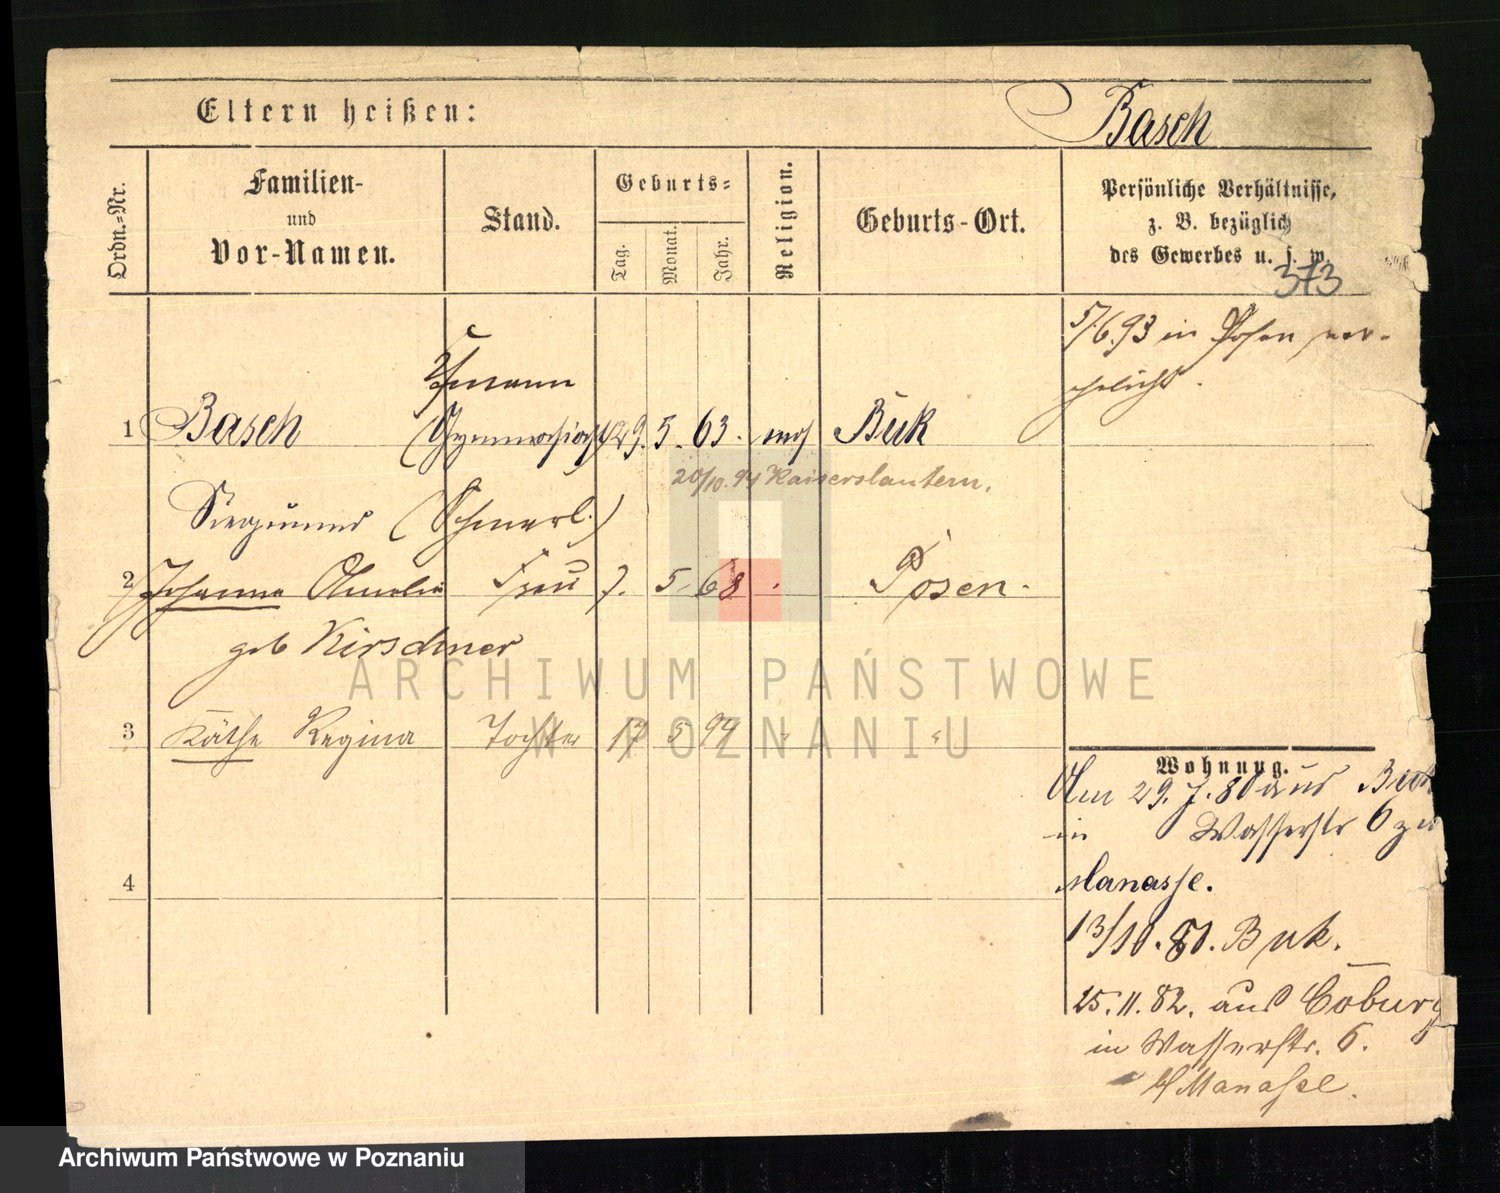 Eltern heißen:
Basch
Ordn.-Nr.
Familien-
und
Vor-Namen.
Stand.
Geburts-
Tag.
Monat.
Jahr.
Religion.
Geburts-Ort.
Persönliche Verhältnisse,
z. B. bezüglich
des Gewerbes u. s. w.
373
5/6.93 in Posen ver-
ehelicht.
1 Basch (Gymnasiast) 29. 5. 63. mos Buk
20/10.94 Kaiserslautern.
Siegmund
2 Johanna Amalie Frau 7. 5. 68 Posen.
geb Kirschner
3 Käthe Regina Tochter 17 5 94 " "
4
Wohnung.
Am 29. 7. 80 aus Buk
in Wasserstr 6 zu
Manasse.
13/10. 81. Buk.
25. 11. 82. aus Coburg
in Wasserstr. 6.
b/ Manasse.
ARCHIWUM PAŃSTWOWE
W POZNANIU
Archiwum Państwowe w Poznaniu